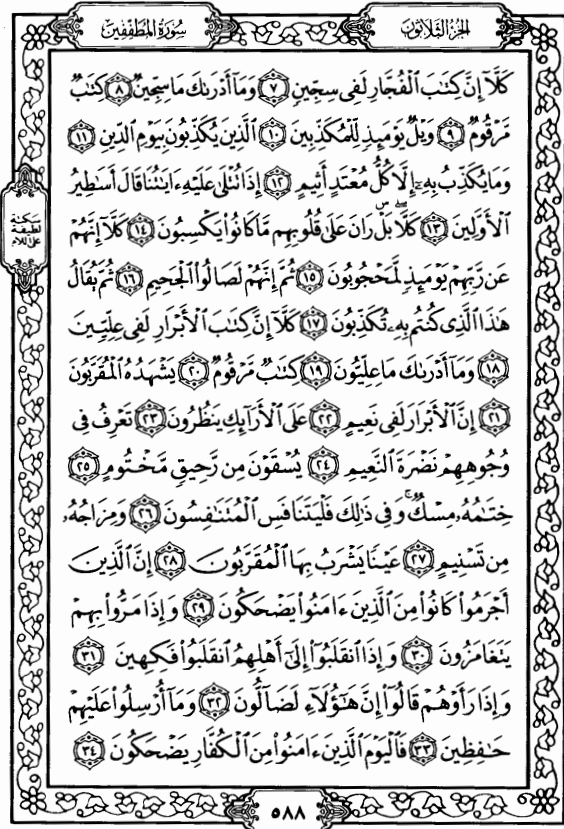 سُورَةُ المُطَفِّفِينَ
الجُزءُ الثَّلَاثُونَ
كَلَّآ إِنَّ كِتَٰبَ ٱلْفُجَّارِ لَفِى سِجِّينٍ ٧ وَمَآ أَدْرَىٰكَ مَا سِجِّينٌ ٨ كِتَٰبٌ
مَّرْقُومٌ ٩ وَيْلٌ يَوْمَئِذٍ لِّلْمُكَذِّبِينَ ١٠ ٱلَّذِينَ يُكَذِّبُونَ بِيَوْمِ ٱلدِّينِ ١١
وَمَا يُكَذِّبُ بِهِۦٓ إِلَّا كُلُّ مُعْتَدٍ أَثِيمٍ ١٢ إِذَا تُتْلَىٰ عَلَيْهِ ءَايَٰتُنَا قَالَ أَسَٰطِيرُ
ٱلْأَوَّلِينَ ١٣ كَلَّا ۖ بَلْ ۜ رَانَ عَلَىٰ قُلُوبِهِم مَّا كَانُوا۟ يَكْسِبُونَ ١٤ كَلَّآ إِنَّهُمْ
عَن رَّبِّهِمْ يَوْمَئِذٍ لَّمَحْجُوبُونَ ١٥ ثُمَّ إِنَّهُمْ لَصَالُوا۟ ٱلْجَحِيمِ ١٦ ثُمَّ يُقَالُ
هَٰذَا ٱلَّذِى كُنتُم بِهِۦ تُكَذِّبُونَ ١٧ كَلَّآ إِنَّ كِتَٰبَ ٱلْأَبْرَارِ لَفِى عِلِّيِّينَ
١٨ وَمَآ أَدْرَىٰكَ مَا عِلِّيُّونَ ١٩ كِتَٰبٌ مَّرْقُومٌ ٢٠ يَشْهَدُهُ ٱلْمُقَرَّبُونَ
٢١ إِنَّ ٱلْأَبْرَارَ لَفِى نَعِيمٍ ٢٢ عَلَى ٱلْأَرَآئِكِ يَنظُرُونَ ٢٣ تَعْرِفُ فِى
وُجُوهِهِمْ نَضْرَةَ ٱلنَّعِيمِ ٢٤ يُسْقَوْنَ مِن رَّحِيقٍ مَّخْتُومٍ ٢٥
خِتَٰمُهُۥ مِسْكٌ ۚ وَفِى ذَٰلِكَ فَلْيَتَنَافَسِ ٱلْمُتَنَٰفِسُونَ ٢٦ وَمِزَاجُهُۥ
مِن تَسْنِيمٍ ٢٧ عَيْنًا يَشْرَبُ بِهَا ٱلْمُقَرَّبُونَ ٢٨ إِنَّ ٱلَّذِينَ
أَجْرَمُوا۟ كَانُوا۟ مِنَ ٱلَّذِينَ ءَامَنُوا۟ يَضْحَكُونَ ٢٩ وَإِذَا مَرُّوا۟ بِهِمْ
يَتَغَامَزُونَ ٣٠ وَإِذَا ٱنقَلَبُوٓا۟ إِلَىٰٓ أَهْلِهِمُ ٱنقَلَبُوا۟ فَكِهِينَ ٣١
وَإِذَا رَأَوْهُمْ قَالُوٓا۟ إِنَّ هَٰٓؤُلَآءِ لَضَآلُّونَ ٣٢ وَمَآ أُرْسِلُوا۟ عَلَيْهِمْ
حَٰفِظِينَ ٣٣ فَٱلْيَوْمَ ٱلَّذِينَ ءَامَنُوا۟ مِنَ ٱلْكُفَّارِ يَضْحَكُونَ ٣٤
سكتة
لطيفة
على اللام
٥٨٨